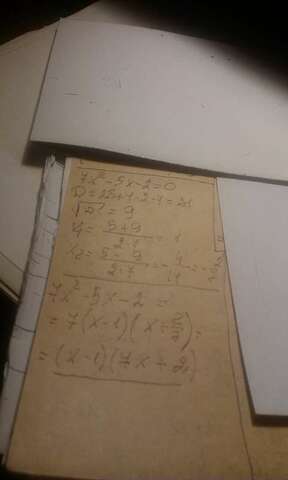 7x²-5x-2=0
D=25+4·2·7=81
√D=9
x₁=5+9/2·7=1
x₂=5-9/2·7=-4/14=-2/7
7x²-5x-2=
=7(x-1)(x+2/7)=
=(x-1)(7x+2)